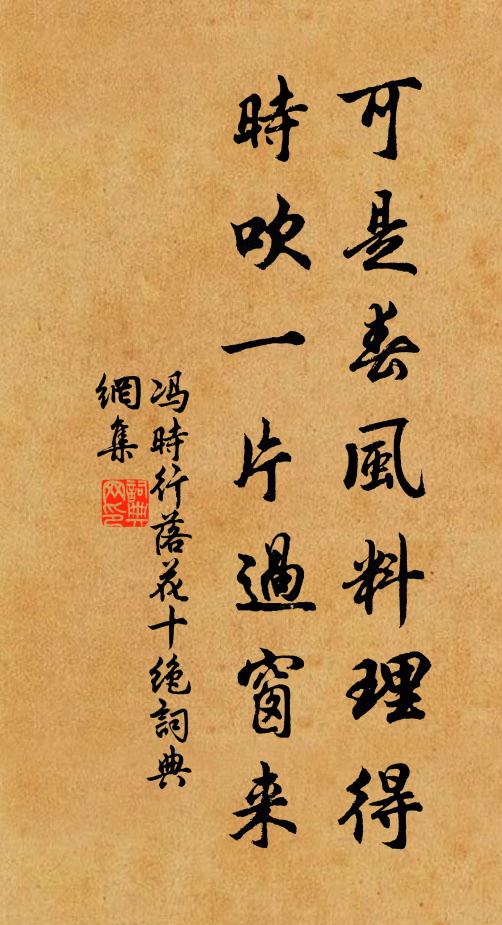 可是春風料理得
時吹一片過窗来
冯時行落花十绝詞典
網集
詞典
网印